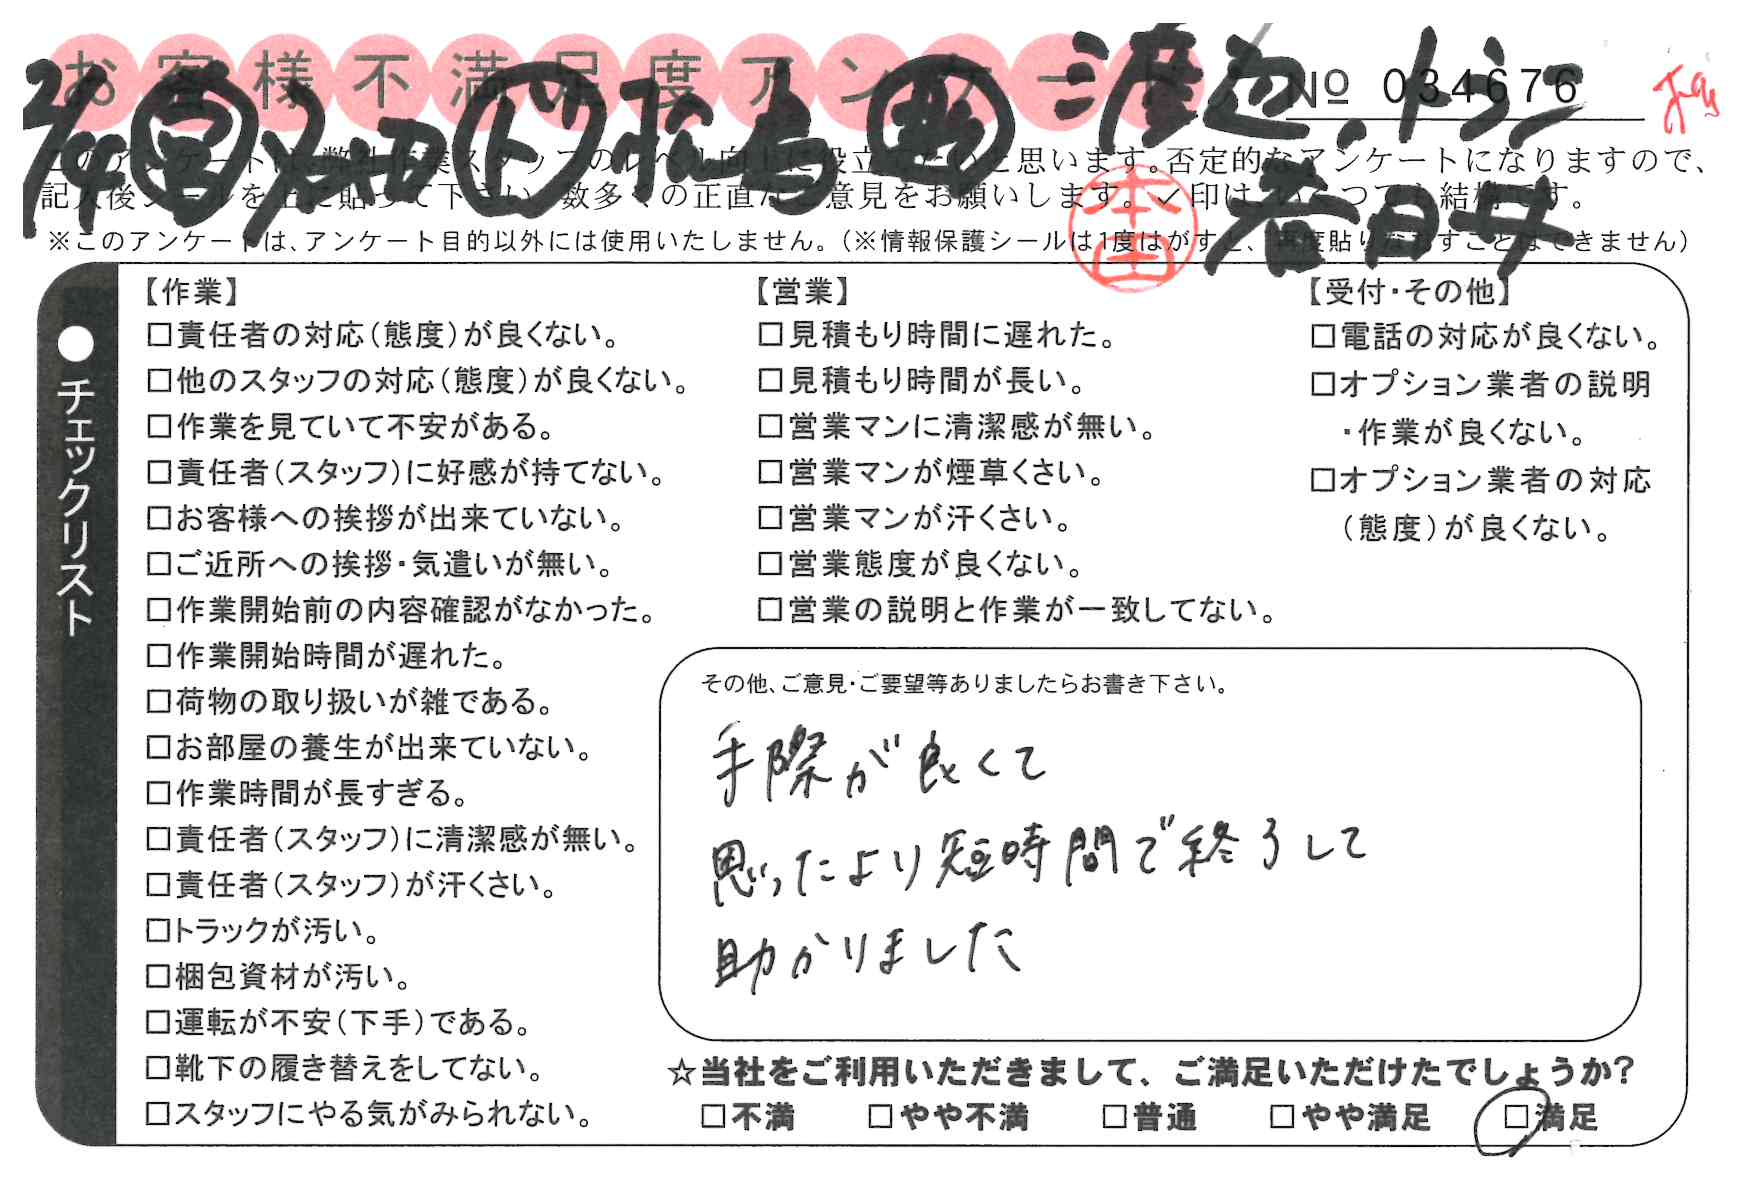 お客様不満足度アンケート
№ 034676
このアンケートは、弊社作業スタッフのレベル向上に役立てたいと思います。否定的なアンケートになりますので、
記入後シールを上に貼って下さい。数多くの正直なご意見をお願いします。✓印は、いくつでも結構です。
※このアンケートは、アンケート目的以外には使用いたしません。(※情報保護シールは1度はがすと、再度貼りなおすことはできません)
本田
●チェックリスト
【作業】
□責任者の対応(態度)が良くない。
□他のスタッフの対応(態度)が良くない。
□作業を見ていて不安がある。
□責任者(スタッフ)に好感が持てない。
□お客様への挨拶が出来ていない。
□ご近所への挨拶・気遣いが無い。
□作業開始前の内容確認がなかった。
□作業開始時間が遅れた。
□荷物の取り扱いが雑である。
□お部屋の養生が出来ていない。
□作業時間が長すぎる。
□責任者(スタッフ)に清潔感が無い。
□責任者(スタッフ)が汗くさい。
□トラックが汚い。
□梱包資材が汚い。
□運転が不安(下手)である。
□靴下の履き替えをしてない。
□スタッフにやる気がみられない。
【営業】
□見積もり時間に遅れた。
□見積もり時間が長い。
□営業マンに清潔感が無い。
□営業マンが煙草くさい。
□営業マンが汗くさい。
□営業態度が良くない。
□営業の説明と作業が一致してない。
【受付・その他】
□電話の対応が良くない。
□オプション業者の説明
・作業が良くない。
□オプション業者の対応
(態度)が良くない。
その他、ご意見・ご要望等ありましたらお書き下さい。
手際が良くて
思ったより短時間で終了して
助かりました
☆当社をご利用いただきまして、ご満足いただけたでしょうか?
□不満 □やや不満 □普通 □やや満足 □満足